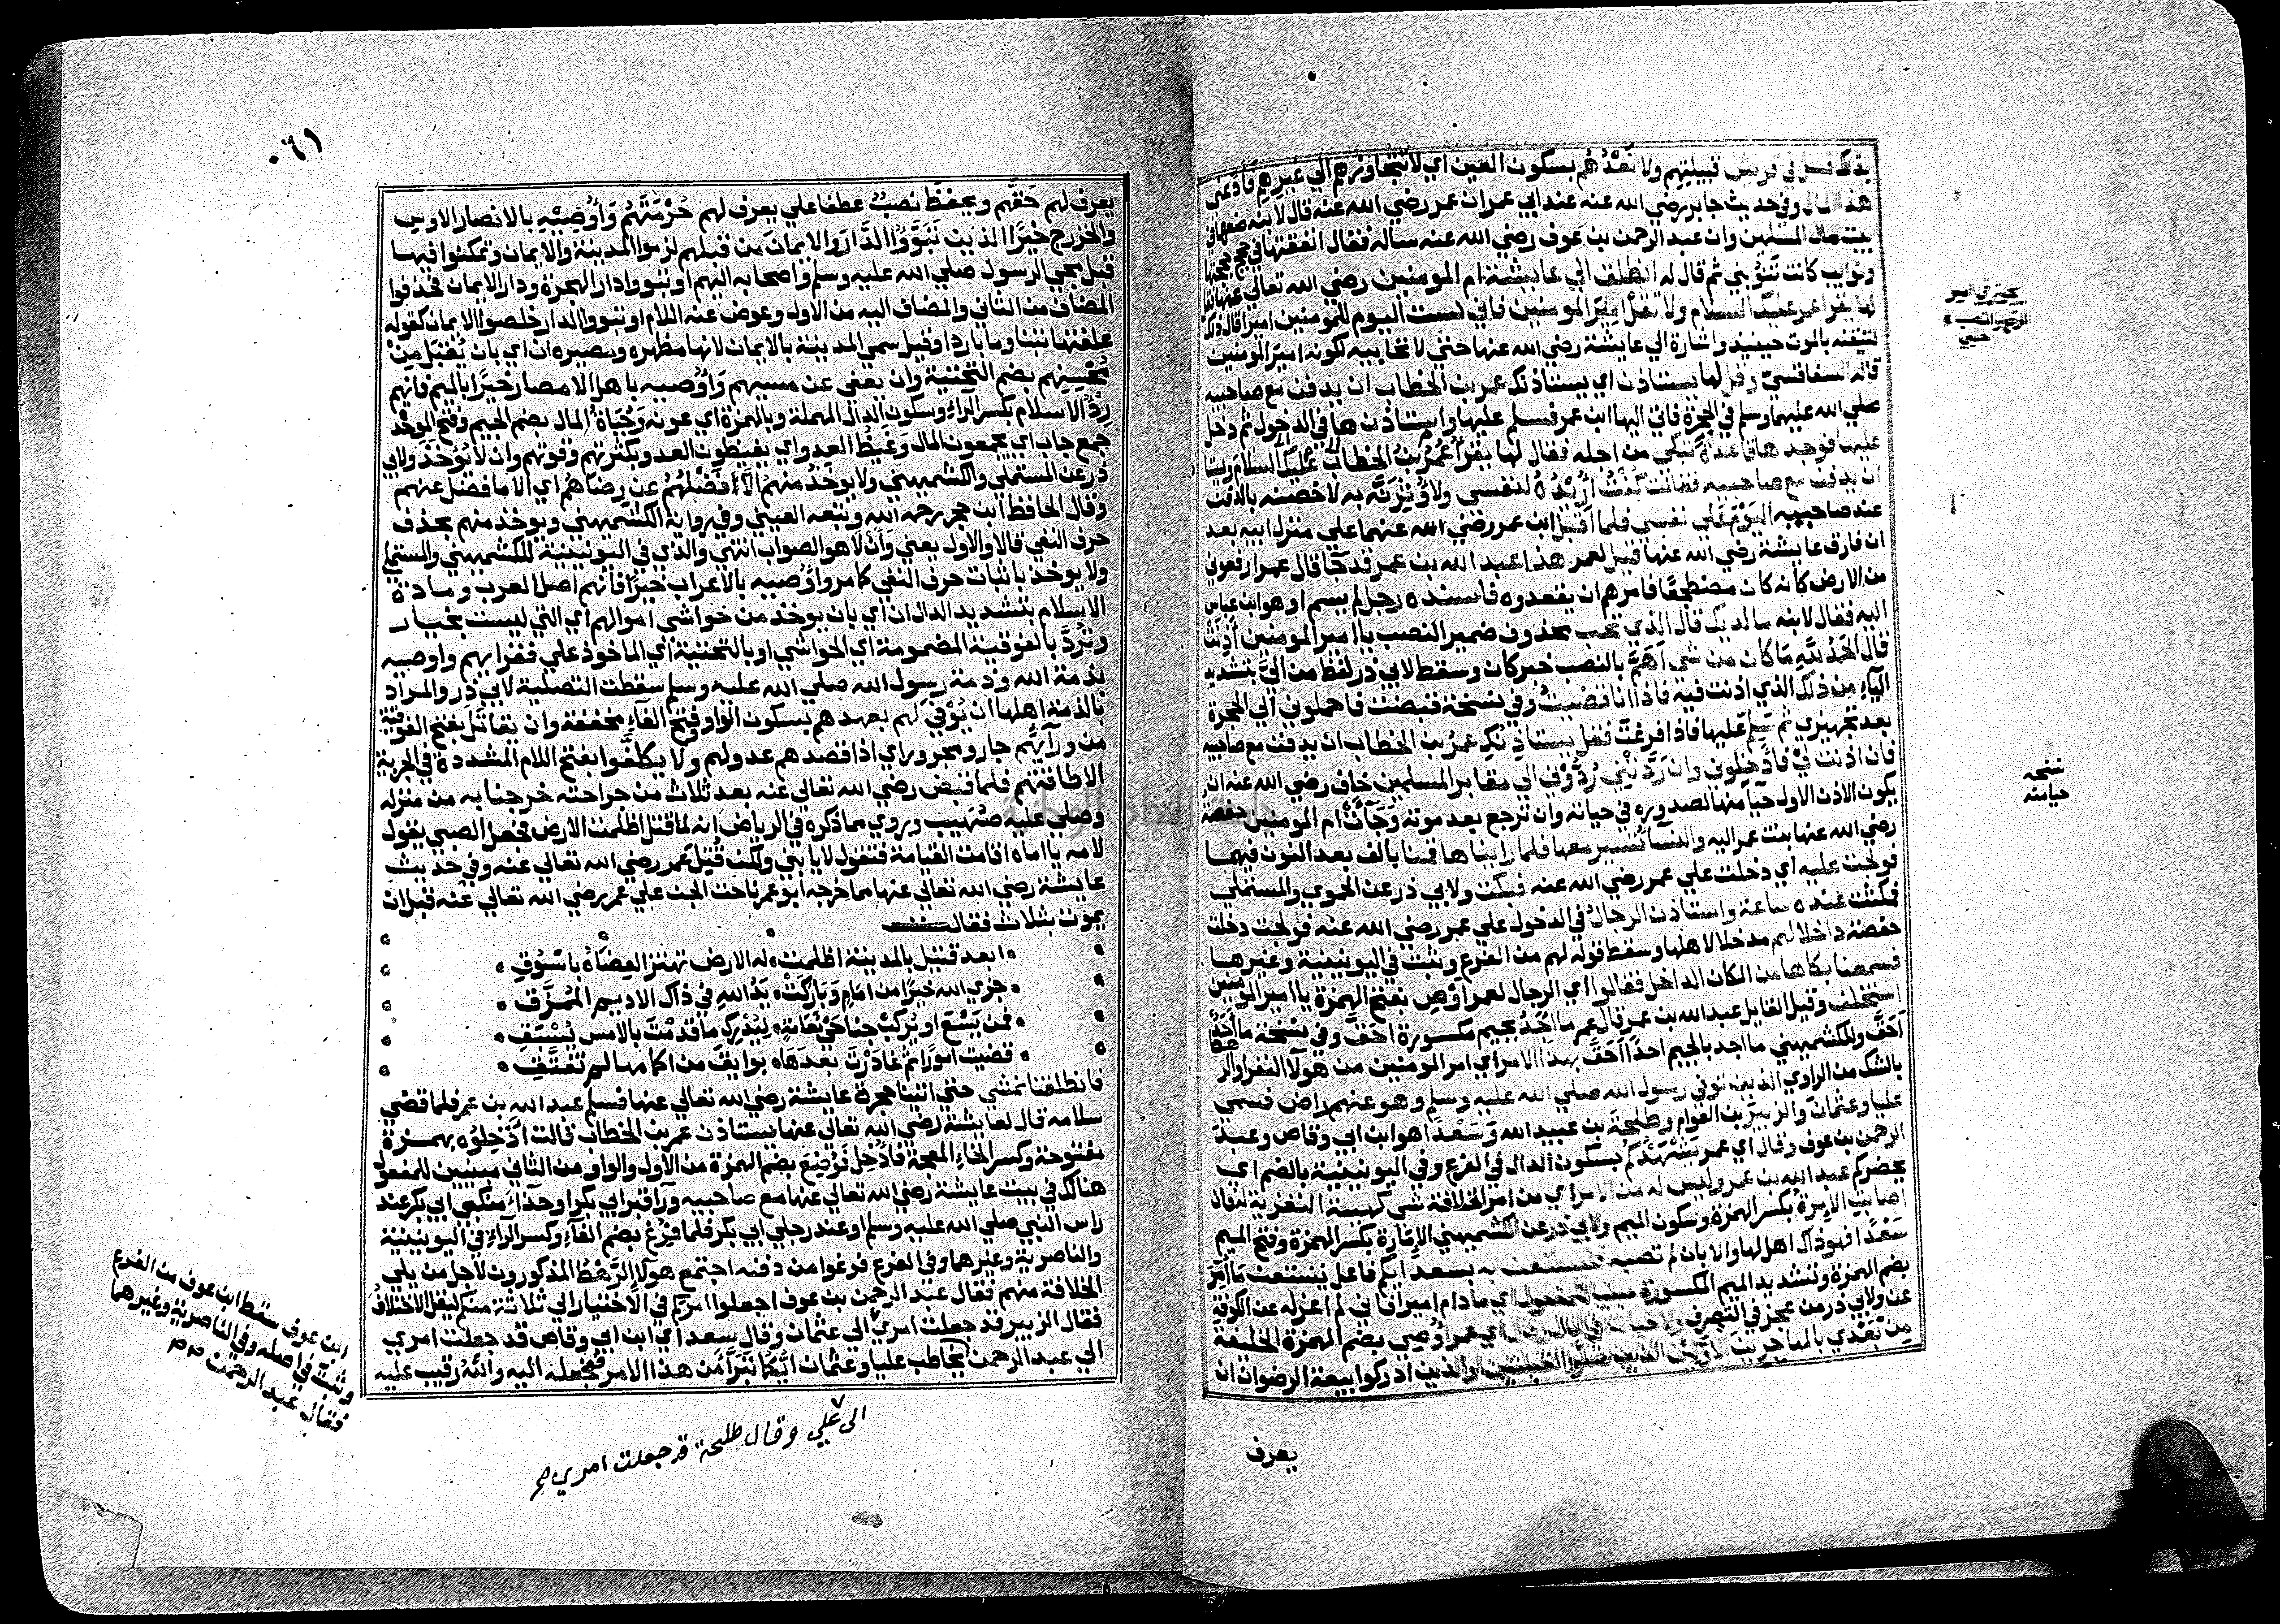 فسل في قريش قبيلتهم ولا تعدهم بسكون العين اي لا تتجاوزهم الي غيرهم فأدّ عني
هذا المال وفي حديث جابر رضي الله عنه عند ابي عمران عمر رضي الله عنه قال لابنه ضعها في
بيت مال المسلمين وان عبد الرحمن بن عوف رضي الله عنه ساله فقال انفقتها في حجج حججتها
ونوايب كانت تنوبني ثم قال له انطلق الي عايشة ام المومنين رضي الله تعالي عنها فقل
لها يقرا عمر عليك السلام ولا تقل امير المومنين فاني لست اليوم للمومنين اميرا قال ذلك
لتيقنه بالموت حينيذ واشارة الي عايشة رضي الله عنها حتي لا تحابيه لكونه امير المومنين
قاله السفاقسي وقل لها يستاذن اي يستاذنك عمر بن الخطاب ان يدفن مع صاحبيه
صلي الله عليهما وسلم في الحجرة فاتي اليها ابن عمر فسلم عليها واستاذنها في الدخول ثم دخل
عليها فوجدها قاعدة تبكي من اجله فقال لها يقرا عمر بن الخطاب عليك السلام ويستا
ان يدفن مع صاحبيه فقالت كنت اريده لنفسي ولاوثرنه به لاخصنه بالدفن
عند صاحبيه اليوم علي نفسي فلما اقبل ابن عمر رضي الله عنهما علي منزل ابيه بعد
ان فارق عايشة رضي الله عنها قيل لعمر هذا عبد الله بن عمر قد جآ قال عمر ارفعوني
من الارض كانه كان مضطجعا فامرهم ان يقعدوه فاسنده رجل لم يسم او هو ابن عباس
اليه فقال لابنه ما لديك قال الذي تحب بحذف ضمير النصب يا امير المومنين اذنت
قال الحمد لله ما كان من شي اهم بالنصب خبر كان وسقط لابي ذر لفظ من اليّ بتشديد
الياء من ذلك الذي اذنت فيه فاذا انا قضيت وفي نسخة قبضت فاحملوني الي الحجرة
بعد تجهيزي ثم سلم عليها فاذا فرغت فقل يستاذنك عمر بن الخطاب ان يدفن مع صاحبيه
فان اذنت لي فادخلوني وان ردتني ردوني الي مقابر المسلمين خاف رضي الله عنه ان
يكون الاذن الاول حيا منها لصدوره في حياته وان ترجع بعد موته وجآت ام المومنين حفصة
رضي الله عنها بنت عمر اليه والنسآ تسير معها فلما رايناها قمنا بالف بعد النون فيهما
فولجت عليه اي دخلت علي عمر رضي الله عنه فبكت ولابي ذر عن الحموي والمستملي
فمكثت عنده ساعة واستاذن الرجال في الدخول علي عمر رضي الله عنه فولجت دخلت
حفصة داخلا لهم مدخلا لاهلها وسقط قوله لهم من الفرع وثبت في اليونينية وغيرها
فسمعنا بكاها من المكان الداخل فقالوا اي الرجال لعمر اوص بفتح الهمزة يا امير المومنين
استخلف وقيل القايل عبد الله بن عمر قال عمر ما اجد بجيم مكسورة احق وفي نسخة ما احد
احق وللكشميهني ما اجد بالجيم احدا احق بهذا الامر اي امر المومنين من هولآ النفر او الر
بالشك من الراوي الذين توفي رسول الله صلي الله عليه وسلم وهو عنهم راض فسمي
عليا وعثمان والزبير بن العوام وطلحة بن عبيد الله وسعدا هو ابن ابي وقاص وعبد
الرحمن بن عوف وقال اي عمر يشهدكم بسكون الدال في الفرع وفي اليونينية بالضم اي
يحضركم عبد الله بن عمر وليس له من الامر اي من امر الخلافة شي كهيئة التعزية له فان
اصابت الامرة بكسر الهمزة وسكون الميم ولابي ذر عن الكشميهني الامارة بكسر الهمزة وفتح الميم
سعدا فهو ذاك اهل لها والا بان لم تصبه فليستعن به بسعد ايكم فاعل يستعن ما امر
بضم الهمزة وتشديد الميم المكسورة مبنيا للمفعول اي ما دام اميرا فاني لم اعزله عن الكوفة
عن ولابي ذر من عجز في التصرف ولا خيانة في المال وقال اي عمر اوصي بضم الهمزة الخليفة
من بعدي بالمهاجرين الاولين الذين صلوا القبلتين او الذين ادركوا بيعة الرضوان ان
يعرف
نسخة
حياته
يعرف لهم حقهم ويحفظ نصب عطفا علي يعرف لهم حرمتهم واوصيه بالانصار الاوس
والخزرج خيرا الذين تبوؤا الدار والايمان من قبلهم لزموا المدينة والايمان وتمكنوا فيها
قبل مجي الرسول صلي الله عليه وسلم واصحابه اليهم او تبووا دار الهجرة ودار الايمان فحذفوا
المضاف من الثاني والمضاف اليه من الاول وعوض عنه اللام او تبووا الدار وخلصوا الايمان كقوله
علفتها تبنا وما باردا وقيل سمي المدينة بالايمان لانها مظهره ومصيره ان اي بان يقبل من
محسنهم بضم التحتية وان يعفي عن مسيهم واوصيه باهل الامصار خيرا بالميم فانهم
ردء الاسلام بكسر الراء وسكون الدال المهملة وبالهمزة اي عونه وجباة المال بضم الجيم وفتح الموحد
جمع جاب اي يجمعون المال وغيظ العدو اي يغيظون العدو بكثرتهم وقوتهم وان لا يوخذ ولابي
ذر عن المستملي والكشميهني ولا يوخذ منهم الا فضلهم عن رضاهم اي الا ما فضل عنهم
وقال الحافظ ابن حجر رحمه الله وتبعه العيني وفي رواية الكشميهني ويوخذ منهم بحذف
حرف النفي قالا والاول يعني وان لا هو الصواب انتهي والذي في اليونينية للكشميهني والمستملي
ولا يوخذ باثبات حرف النفي كامر واوصيه بالاعراب خيرا فانهم اصل العرب ومادة
الاسلام بتشديد الدال ان اي بان يوخذ من حواشي اموالهم اي التي ليست بخيار
وترد بالفوقية المضمومة اي الحواشي او بالتحتية اي الماخوذ علي فقرايهم واوصيه
بذمة الله وذمة رسول الله صلي الله عليه وسلم سقطت التصلية لابي ذر والمراد
بالذمة اهلها ان يوفي لهم بعهدهم بسكون الواو وفتح الفآء مخففة وان يقاتل بفتح الفوقية
من ورآيهم جار ومجرور اي اذا قصدهم عدو لهم ولا يكلفوا بفتح اللام المشددة في الجزية
الا طاقتهم فلما قبض رضي الله تعالي عنه بعد ثلاث من جراحته خرجنا به من منزله
وصلي عليه صهيب وروي مما ذكره في الرياض انه لما قتل اظلمت الارض فجعل الصبي يقول
لامه يا اماه اقامت القيامة فتقول لا يا بني ولكن قتل عمر رضي الله تعالي عنه وفي حديث
عايشة رضي الله تعالي عنها مما خرجه ابو عمر ناحت الجن علي عمر رضي الله تعالي عنه قبل ان
يموت بثلاث فقالت
ابعد قتيل بالمدينة اظلمت له الارض تهتز العضاه باسوق
جزي الله خيرا من امام وباركت يد الله في ذاك الاديم الممزق
فمن يسع او يركب جناحي نعامة ليدرك ما قدمت بالامس يسبق
قضيت امورا ثم غادرت بعدها بوايق من اكمامها لم تفتق
فانطلقنا نمشي حتي اتينا حجرة عايشة رضي الله تعالي عنها فسلم عبد الله بن عمر فلما قضي
سلامه قال لعايشة رضي الله تعالي عنها يستاذن عمر بن الخطاب قالت ادخلوه بهمزة
مفتوحة وكسر الخاء المعجمة فادخل فوضع بضم الهمزة من الاول والواو من الثاني مبنيين للمفعول
هنالك في بيت عايشة رضي الله تعالي عنها مع صاحبيه ورآ قبر ابي بكر او حذاء منكبي ابي بكر عند
راس النبي صلي الله عليه وسلم او عند رجلي ابي بكر فلما فرغ بضم الفآء وكسر الرآء في اليونينية
والناصرية وغيرها وفي الفرع فرغوا من دفنه اجتمع هولآ الرهط المذكورون لاجل من يلي
الخلافة منهم فقال عبد الرحمن بن عوف اجعلوا امركم في الاختيار الي ثلاثة منكم ليقل الاختلاف
فقال الزبير قد جعلت امري الي عثمان وقال سعد اي ابن ابي وقاص قد جعلت امري
الي عبد الرحمن يخاطب عليا وعثمان ايكما تبرأ من هذا الامر فنجعله اليه والله رقيب عليه
الى علي وقال طلحة قد جعلت امري صح
ابن عوف سقط ابن عوف من الفرع
وثبت في اصله وفي الناصرية وغيرهما
فقال عبد الرحمن